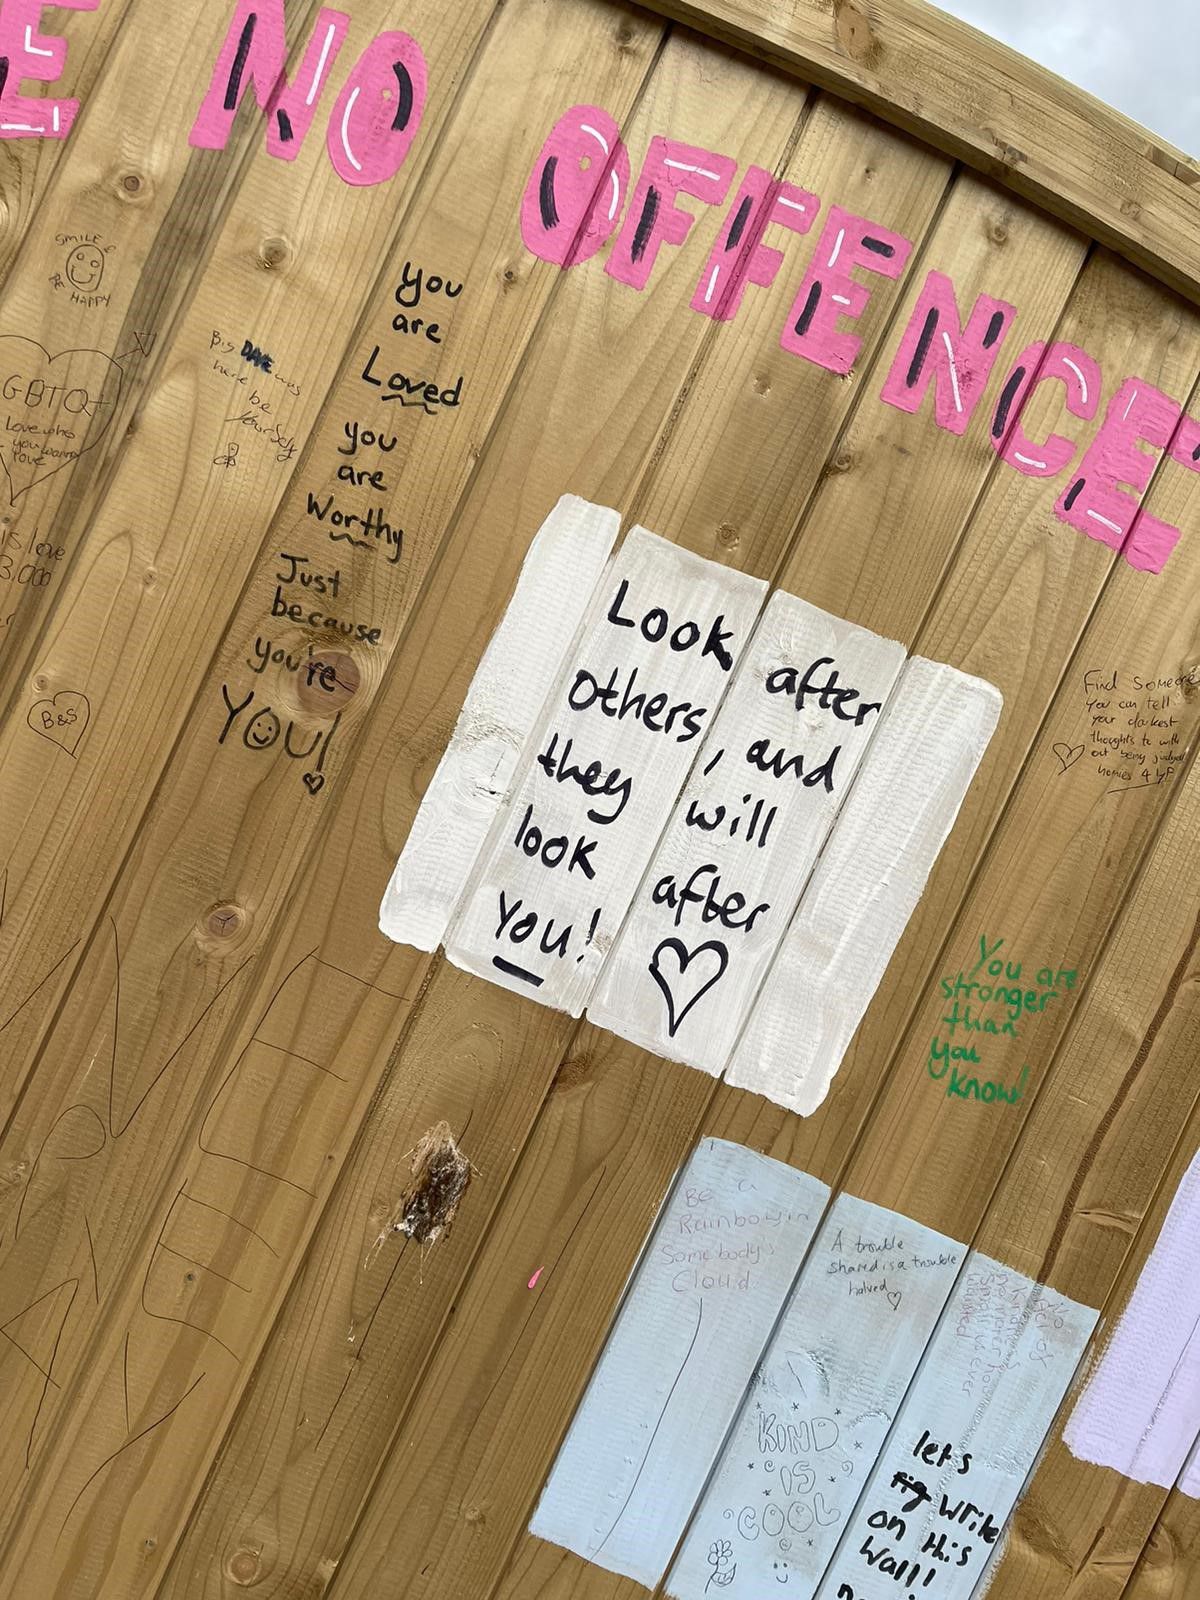 E NO OFFENCE
SMILE &
BE HAPPY
LGBTQ+
Love who
you wanna
love
is love
3,000
Big DAVE was
here be
yourself
B&S
you
are
Loved
you
are
Worthy
Just
because
you're
YOU!
Look after
others, and
they will
look after
You!
Find someone
you can tell
your darkest
thoughts to with
out being judged
homies 4 LYF
You are
stronger
than
you
know!
BE a
Rainbow in
Somebody's
Cloud
A trouble
shared is a trouble
halved
No
act of
kindness
no matter how
small is ever
wasted
KIND
IS
COOL
let's
write
on this
Wall!